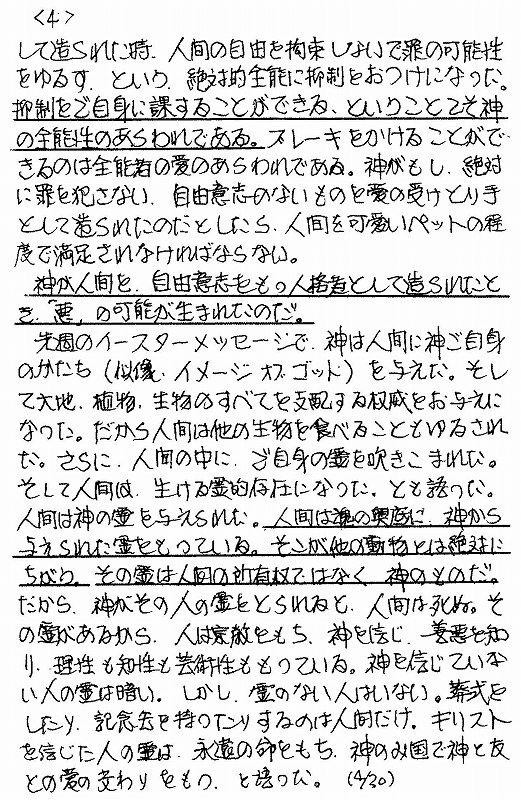 <4>
して造られた時、人間の自由を拘束しないで罪の可能性
をゆるす、という、絶対的全能に抑制をおつけになった。
抑制をご自身に課することができる、ということこそ神
の全能性のあらわれである。ブレーキをかけることがで
きるのは全能者の愛のあらわれである。神がもし、絶対
に罪を犯さない、自由意志のないものを愛の受けとり手
として造られたのだとしたら、人間を可愛いペットの程
度で満足されなければならない。
神が人間を、自由意志をもつ人格者として造られたと
き、「悪」の可能が生まれたのだ。
先週のイースターメッセージで、神は人間に神ご自身
のかたち（似像、イメージ オブ ゴッド）を与えた。そし
て大地、植物、生物のすべてを支配する权威をお与えに
なった。だから人間は他の生物を食べることもゆるされ
た。さらに、人間の中に、ご自身の霊を吹きこまれた。
そして人間は、生ける霊的存在になった、とも語った。
人間は神の霊を与えられた。人間は魂の奥底に、神から
与えられた霊をもっている。そこが他の動物とは絶対に
ちがう。その霊は人間の所有权ではなく、神のものだ。
だから、神がその人の霊をとられると、人間は死ぬ。そ
の霊があるから、人は宗教をもち、神を信じ、善悪を知
り、理性も知性も芸術性ももっている。神を信じていな
い人の霊は暗い。しかし、霊のない人はいない。葬式を
したり、記念会を持ったりするのは人間だけ。キリスト
を信じた人の霊は、永遠の命をもち、神のみ国で神と友
との愛の交わりをもつ、と語った。 (4/30)